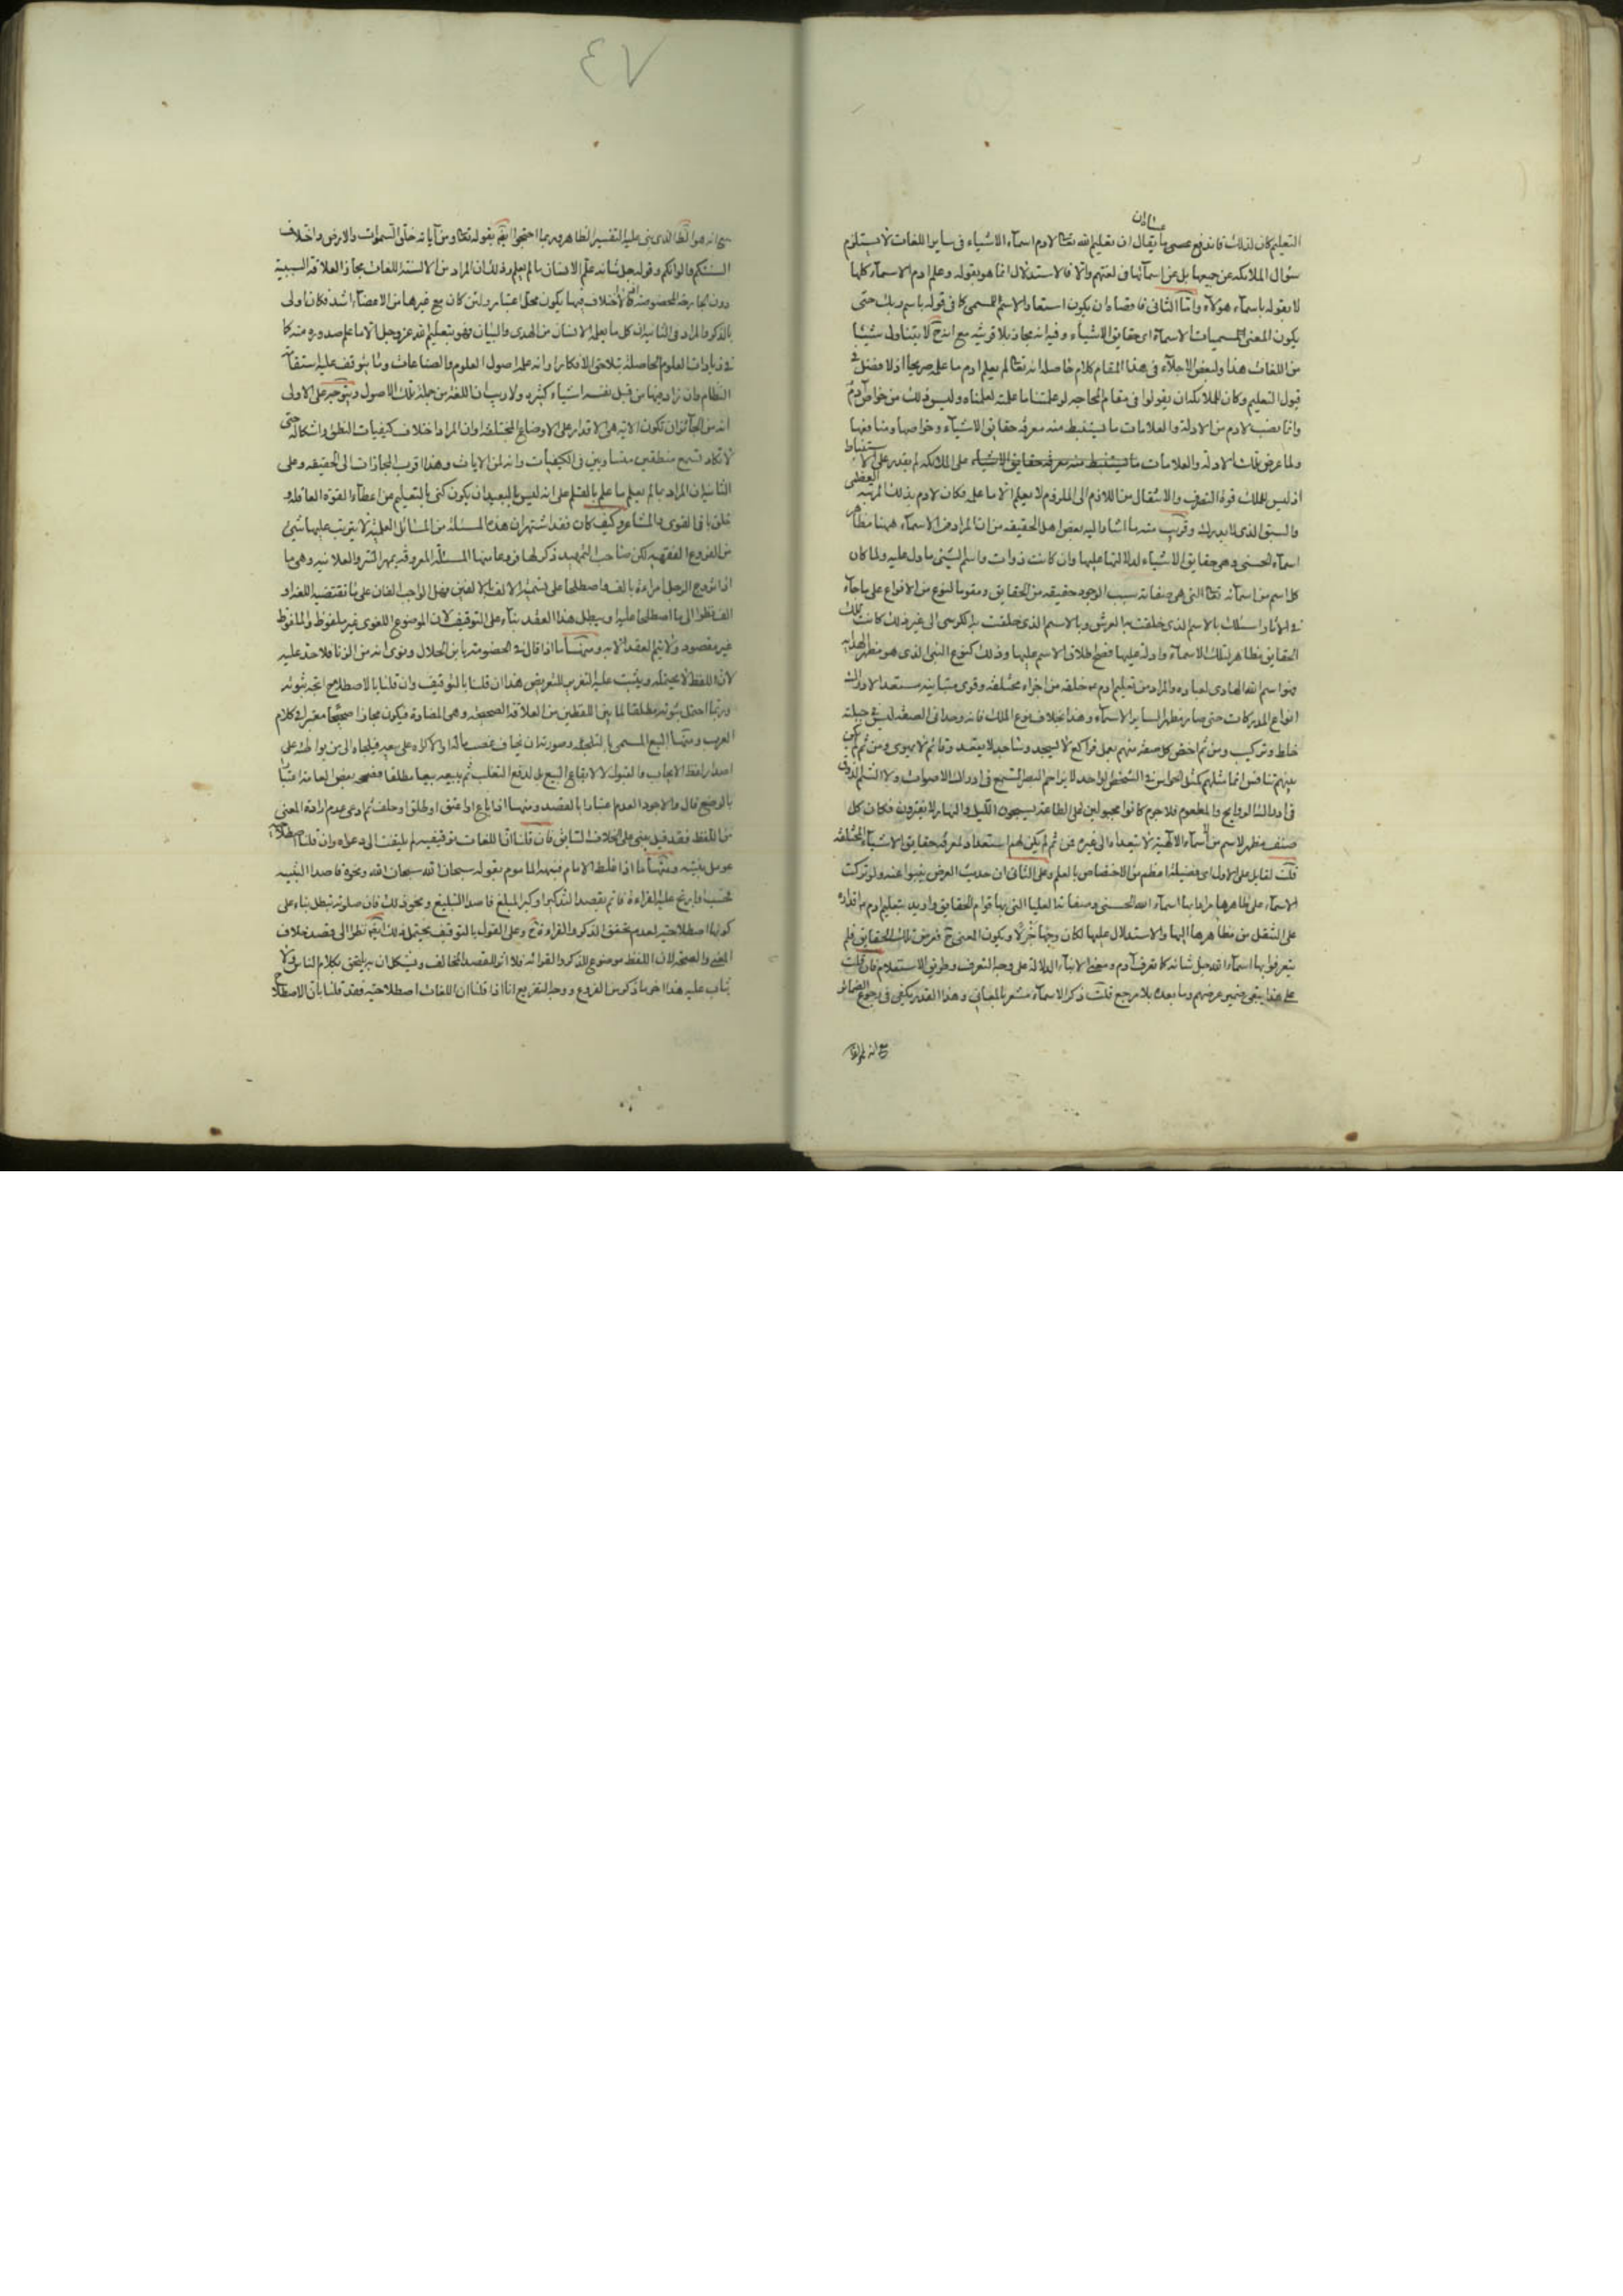 التعليم كان لذلك فاندفع عسى ما يقال ان تعليم الله تعالى لادم اسماء الاشياء فى ساير اللغات لا يستلزم
سؤال الملائكة عن جميعها بل عن اسمائها فى لغتهم والا فالاستدلال انما هو بقوله وعلم ادم الاسماء كلها
لا بقوله باسماء هؤلاء واما الثانى فاقصاه ان يكون استعار الاسم للمسمى كما فى قوله باسم ربك حتى
يكون المعنى مسميات الاسماء اى حقايق الاشياء وفيه انه مجاز بلا قرينة مع انه ح لا يتناول شيئا
من اللغات هذا ولبعض الاجلاء فى هذا المقام كلام حاصله انه تعالى لم يعلم ادم ما علمه صريحا اذ لا فضل فى
قبول التعليم وكان للملائكة ان يقولوا فى مقام المحاجه لو علمتنا ما علمته لعلمناه وليس ذلك من خواص ادم
وانما نصب لادم من الادلة والعلامات ما يستنبط منه معرفة حقايق الاشياء وخواصها ومنافعها
ولما عرض تلك الادلة والعلامات على الملائكة لم يقدروا على الاستنباط
اذ ليس للملك قوة التصرف والانتقال من اللازم الى الملزوم لا يعلم الا ما علم فكان لادم بذلك المرتبة العظمى
والسبق الذى لا يدرك وقريب منه ما اشار اليه بعض اهل الحقيقه من ان المراد من الاسماء ههنا مظاهر
اسماء الحسنى وهى حقايق الاشياء لدلالتها عليها وان كانت ذوات واسم الشئ ما دل عليه ولما كان
كل اسم من اسمائه تعالى التى هى صفاته سبب لوجود حقيقه من الحقايق ومقوما لنوع من الانواع على ما جاء
فى الاثار اسئلك بالاسم الذى خلقت به العرش وبالاسم الذى خلقت به الكرسى الى غير ذلك كانت تلك
الحقايق مظاهر لتلك الاسماء وادلة عليها فصح اطلاق الاسم عليها وذلك كنوع النبى الذى هو مظهر الهداية
وهو اسم الله الهادى لعباده والمراد من تعليم ادم خلقه من اجزاء مختلفه وقوى متباينه مستعدا لادراك
انواع المدركات حتى صار مظهرا لساير الاسماء وهذا بخلاف نوع الملك فانه وحدانى الصفه ليس فى جبلته
خلط وتركيب ومن ثم اختص كل صنف منهم بعمل فراكع لا يسجد وساجد لا يقعد وقائم لا يهوى ومن ثم لم يكن
بينهم تنافس انما مثلهم كمثل الحواس فى الشخص الواحد لا يزاحم البصر السمع فى ادراك الاصوات ولا الشم الذوق
فى ادراك الروايح والمطعوم فلا جرم كانوا مجبولين على الطاعة يسبحون الليل والنهار لا يفترون فكان كل
صنف مظهر لاسم من اسماء الالهية لا يتعداه الى غيره فمن ثم لم يكن لهم استعداد لمعرفة حقايق الاشياء المختلفة
قلت لقايل على الاول اى فضيلة اعظم من الاختصاص بالعلم وعلى الثانى ان حديث العرض ينبوا عنه ولو تركت
الاسماء على ظاهرها مرادا بها اسماء الله الحسنى وصفاته العليا التى بها قوام الحقايق واريد بتعليم ادم اقداره
على التنقل من مظاهرها اليها والاستدلال عليها لكان وجها جزلا ويكون المعنى ح فعرض تلك الحقايق فلم
يتعرفوا بها اسماء الله جل شانه كما تعرف ادم ومعنى الانباء الدلالة على وجه التعرف وطريق الاستعلام فان قلت
على هذا يبقى ضمير عرضهم وما بعده بلا مرجع قلت ذكر الاسماء مشعر بالمعانى وهذا القدر يكفى فى رجوع الضمائر
مع انه لم
٧٤
الظاهر وربما احتجوا ايضا بقوله تعالى ومن آياته خلق السموات والارض واختلاف
السنتكم والوانكم وقوله جل شانه علم الانسان ما لم يعلم وذلك ان المراد من الالسنة اللغات مجازا لعلاقة السببية
دون الجارحة المخصوصة اذ لا اختلاف فيها يكون محل اعتبار ولئن كان مع غيرها من الاعضاء اشد فكان اولى
بالذكر والمراد فى الثانية ان كل ما يعلمه الانسان من الهدى والبيان فهو بتعليم الله عز وجل الا ما علم صدوره منه كما
فى زيادات العلوم الحاصلة بتلاحق الافكار او انه علم اصول العلوم والصناعات وما يتوقف عليه استقامة
النظام وان زاد فيها من قبل نفسه اشياء كثيرة ولا ريب ان اللغة من جملة تلك الاصول ويتوجه على الاولى
انه من الجائز ان تكون الاية هى الاقدار على الاوضاع المختلفة او ان المراد اختلاف كيفيات النطق واشكاله حتى
لا تكاد تسمع منطقين متساويين فى الكيفيات وانه لمن الايات وهذا اقرب المجازات الى الحقيقه وعلى
الثانية ان المراد بما لم يعلم ما علم بالقلم على انه ليس بالبعيد ان يكون كنى بالتعليم عن اعطاء القوة العاقلة و
خلق باقى القوى والمشاعر وكيف كان فقد اشتهر ان هذه المسئلة من المسائل العلمية لا يترتب عليها شئ
من الفروع الفقهيه لكن صاحب التمهيد ذكر لها فروعا منها المسئلة المعروفة بمهر السر والعلانيه وهى ما
اذا تزوج الرجل امراة بالف واصطلحا على تسمية الالف بالالفين فهل الواجب الفان على ما تقتضيه اللغة او
الف نظرا الى ما اصطلحا عليه او يبطل هذا العقد بناء على التوقيف لان الموضوع اللغوى غير ملفوظ والملفوظ
غير مقصود ولا يتم العقد الا به ومنها ما اذا قال فى الخصومة يا ابن الحلال ونوى انه من الزنا فلا حد عليه
لان اللفظ لا يحتمله ويثبت عليه التعزير للتعريض هذا ان قلنا بالتوقيف وان قلنا بالاصطلاح اتجه ثبوته
وربما احتمل ثبوته مطلقا لما بين اللفظين من العلاقة الصحيحة وهى المضادة فيكون مجازا صحيحا معتبرا فى كلام
العرب ومنها البيع المسمى بالتلجئة وصورته ان يخاف غصب ماله او الاكراه على بيعه فيلجاه الى من يواطئه على
اصدار لفظ الايجاب والقبول لا لايقاع البيع بل لدفع التغلب ثم يبيعه بيعا مطلقا فصححه بعض العامة اعتبارا
بالوضع قال والاجود العدم اعتبارا بالقصد ومنها اذا باع او اعتق او طلق او حلف ثم ادعى عدم ارادة المعنى
من اللفظ فقد قيل يبنى على الخلاف السابق فان قلنا ان اللغات توقيفيه لم يلتفت الى دعواه وان قلنا اصطلاحية
عومل بنيته ومنها ما اذا غلط الامام فنبهه الماموم بقوله سبحان الله سبحان الله ونحوه قاصدا التنبيه
فحسب او ارتج عليه القراءة فاتم بقصد التذكير او كبر المبلغ قاصدا التبليغ ونحو ذلك فان صلوته تبطل بناء على
كونها اصطلاحية لعدم تحقق الذكر والقراءة ح وعلى القول بالتوقيف يحتمل ذلك ايضا نظرا الى قصد خلاف
المعنى والصحة لان اللفظ موضوع للذكر والقرائه فلا اثر للقصد المخالف ويشكل ان به يلتحق بكلام الناس ولا
يثاب عليه هذا اخر ما ذكر من الفروع ووجه التفريع انا اذا قلنا ان اللغات اصطلاحيه فقد قلنا بان الاصطلاح